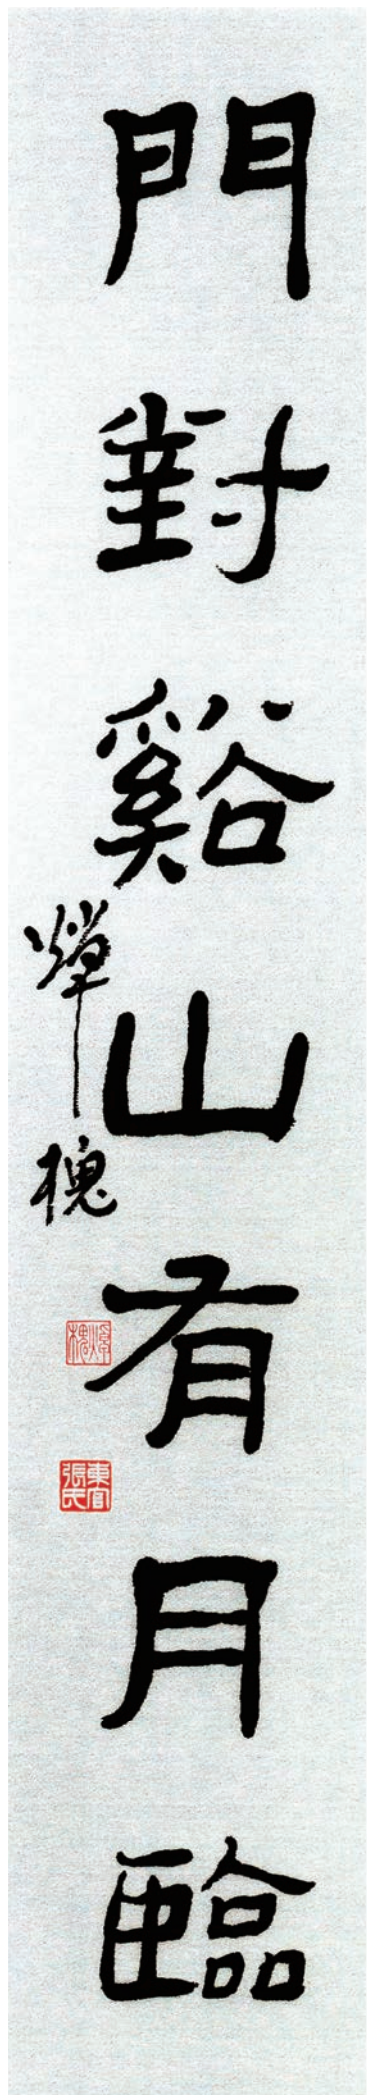 門對谿山有月臨
焯槐
東官張氏